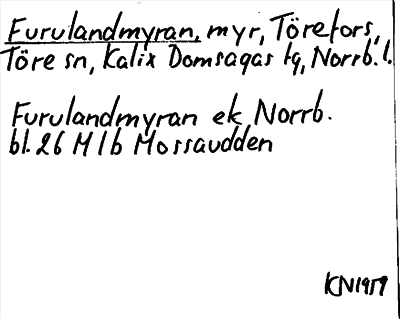 Furulandmyran, myr, Törefors,
Töre sn, Kalix Domsagas tg, Norrb. l.
Furulandmyran ek Norrb.
bl. 26 M 1 b Mossaudden
KN 1959